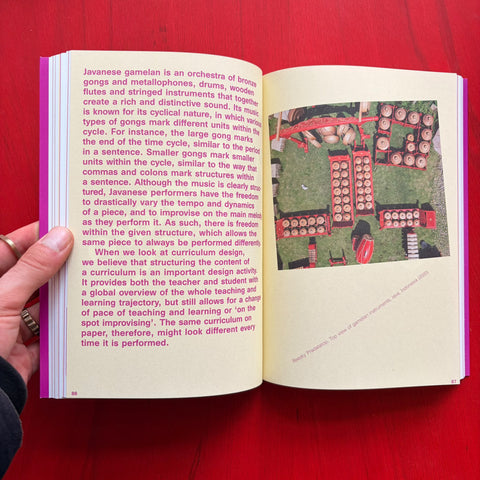 Javanese gamelan is an orchestra of bronze
gongs and metallophones, drums, wooden
flutes and stringed instruments that together
create a rich and distinctive sound. Its music
is known for its cyclical nature, in which various
types of gongs mark different units within the
cycle. For instance, the large gong marks
the end of the time cycle, similar to the period
in a sentence. Smaller gongs mark smaller
units within the cycle, similar to the way that
commas and colons mark structures within
a sentence. Although the music is clearly struc-
tured, Javanese performers have the freedom
to drastically vary the tempo and dynamics
of a piece, and to improvise on the main
as they perform it. As such, there is freedom
within the given structure, which allows the
same piece to always be performed differently.
When we look at curriculum design,
we believe that structuring the content of
a curriculum is an important design activity.
It provides both the teacher and student with
a global overview of the whole teaching and
learning trajectory, but still allows for a change
of pace of teaching and learning or ‘on the
spot improvising’. The same curriculum on
paper, therefore, might look different every
time it is performed.
86
Top view of gamelan instruments, Indonesia
87